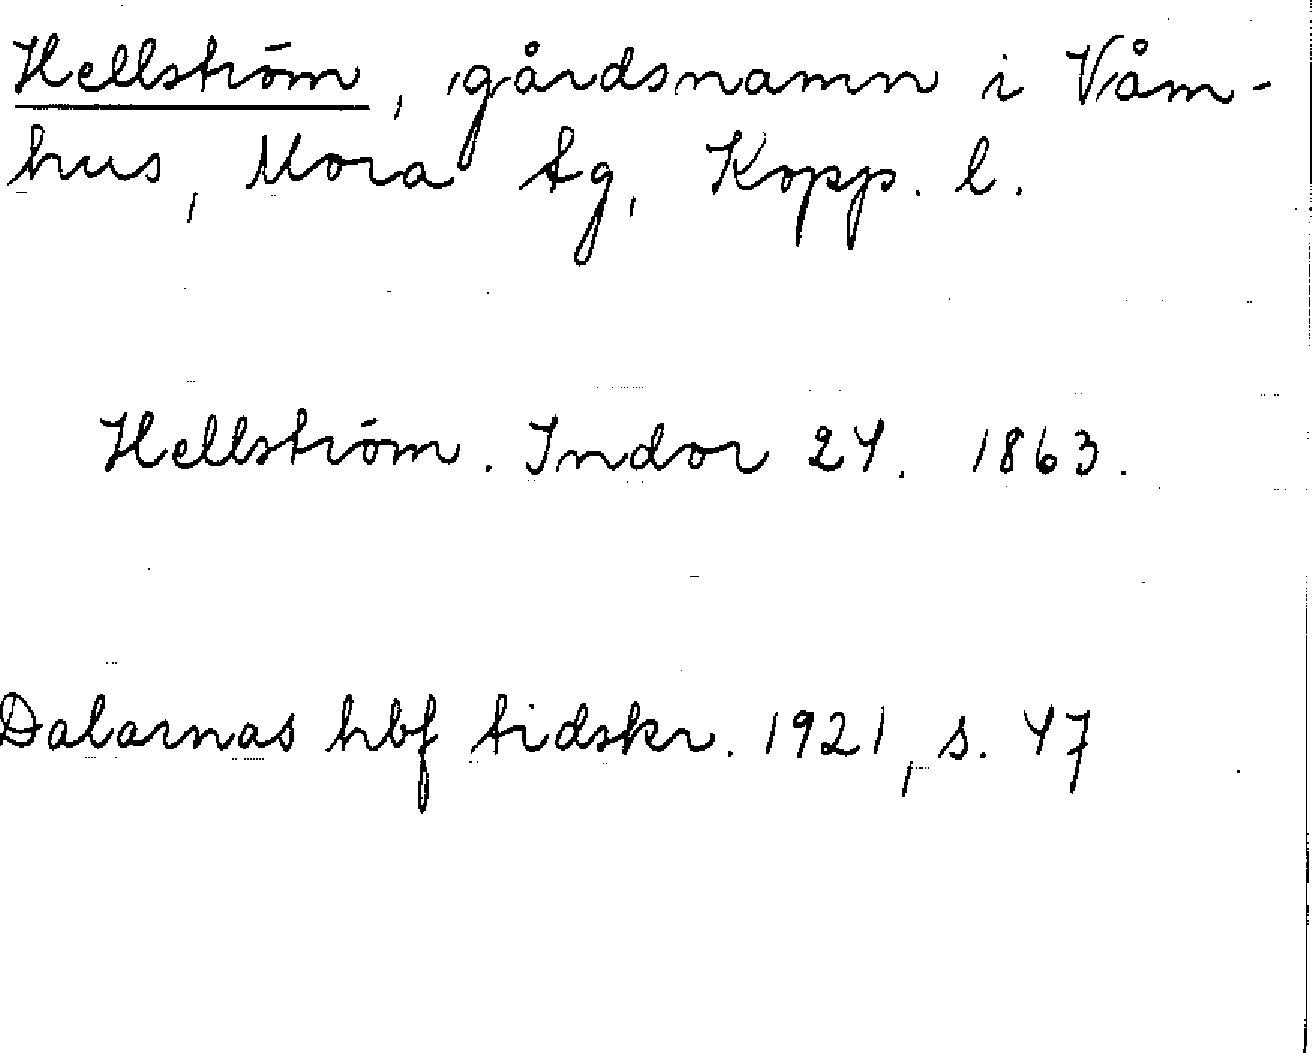 Hellström, gårdsnamn i Våm-
hus, Mora tg, Kopp. l.
Hellström. Indor 24. 1863.
Dalarnas hbf tidskr. 1921, s. 47